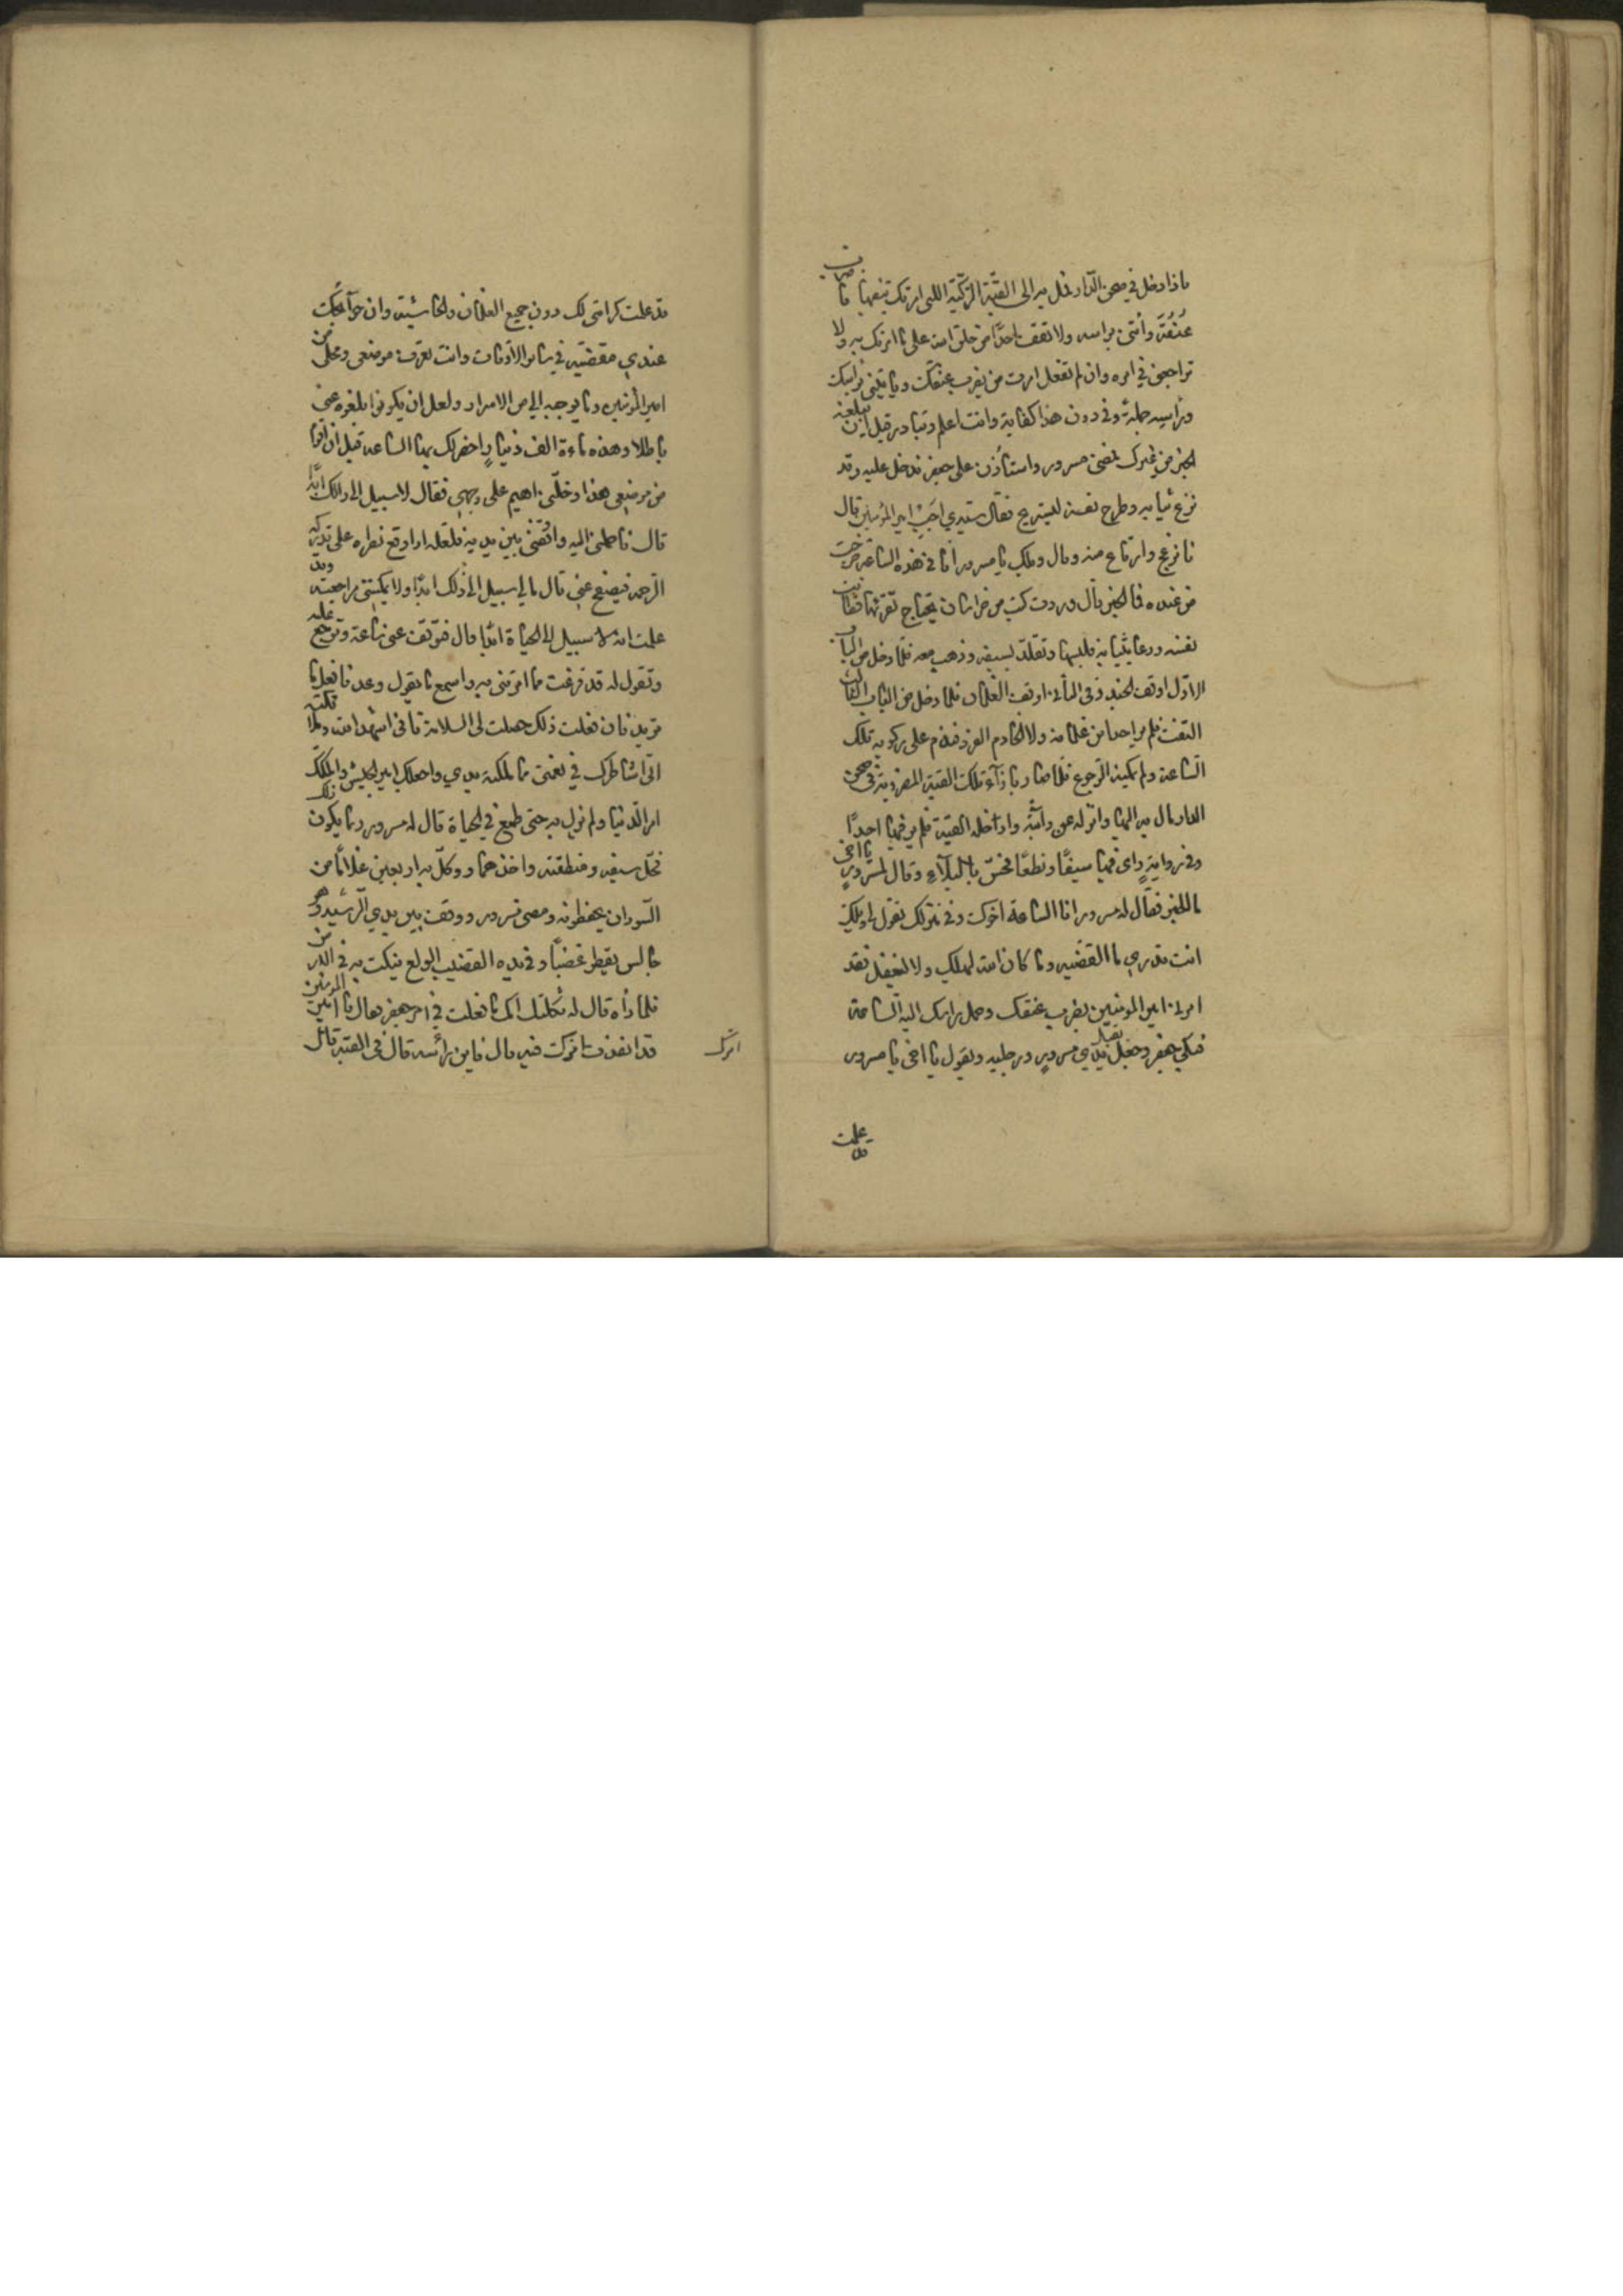 فاذا دخل في صحن الدار فمل به الى القبة التركية اللتي امرتك بنصبها فاضرب
عنقه وأتني براسه ولا تقف احدًا من خلق الله على ما امرتك به ولا
تراجعني في امره وان لم تفعل امرت من يضرب عنقك وياتيني براسك
وراسه جملة وفي دون هذا كفاية وانت اعلم وتبادر قبل ان يبلغه
الخبر من غيرك فمضى مسرور واستأذن على جعفر فدخل عليه وقد
نزع ثيابه وطرح نفسه ليستريح فقال سيدي اجب امير المؤمنين قال
فانزعج وارتاع منه وقال ويلك يا مسرور انا في هذه الساعة خرجت
من عنده فما الخبر قال وردت كتب من خراسان يحتاج تقرئها فطابت
نفسه ودعا بثيابه فلبسها وتقلد بسيفه وذهب معه فلما دخل من الباب
الاول اوقف الجند وفي الثاني اوقف الغلمان فلما دخل من الباب الثالث
التفت فلم ير احدا من غلمانه ولا الخادم الفرد فندم على ركوبه تلك
الساعة ولم يمكنه الرجوع فلما صار بازآء تلك القبة المضروبة في صحن
الدار مال به اليها وانزله عن دابته وادخله القبة فلم ير فيها احدًا
وفي رواية رای فيها سيفًا ونطعًا فحس بالبلآء وقال لمسرور يا اخي
ما الخبر فقال له مسرور انا الساعة اخوك وفي منزلك تقول لي ويلك
انت تدري ما القضيه وما كان الله ليهلك ولا ليغفل فقد
امرني امير المؤمنين بضرب عنقك وحمل راسك اليه الساعة
فبكى جعفر وجعل يقبل يدي مسرور ورجليه ويقول يا اخي يا مسرور
قد علمت
قد علمت كرامتي لك دون جميع الغلمان والحاشية وان حوآئجك
عندي مقضيه في سائر الاوقات وانت تعرف موضعي ومحلي من
امير المؤمنين وما يوجبه الي من الاسرار ولعل ان يكونوا بلغوه عني
باطلا وهذه ماءة الف دينار احضرلك بها الساعة قبل ان اقوم
من موضعي هذا وخلني اهيم على وجهي فقال لا سبيل الى ذالك ابدًا
قال فاحملني اليه واوقفني بين يديه فلعله اذا وقع نظره علي تدركه
الرحمه فيصفح عني قال مالي سبيل الى ذلك ابدًا ولا يمكنني مراجعته وقد
علمت انه لا سبيل الى الحياة ابدًا قال فتوقف عني ساعة وترجع عليه
وتقول له قد فرغت مما امرتني به واسمع ما يقول وعد فافعل ما
تريد فان فعلت ذلك حصلت لي السلامة فاني اشهد الله وملائكته
اني اشاطرك في نعمتي مما ملكته يدي واجعلك امير الجيش واملكك
امر الدنيا ولم يزل به حتى طمع في الحياة قال له مسرور ربما يكون ذلك
فحل سيفه ومنطقته واخذهما ووكل به اربعين غلامًا من
السودان يحفظونه ومضى مسرور ووقف بين يدي الرشيد وهو
جالس يقطر غضبًا وفي يده القضيب الولع ينكت به في الارض
فلما رأه قال له ثكلتك امك ما فعلت في امر جعفر فقال يا امير المؤمنين
قد انفذت امرك فيه قال فاين رأسه قال في القبة قال
امرك